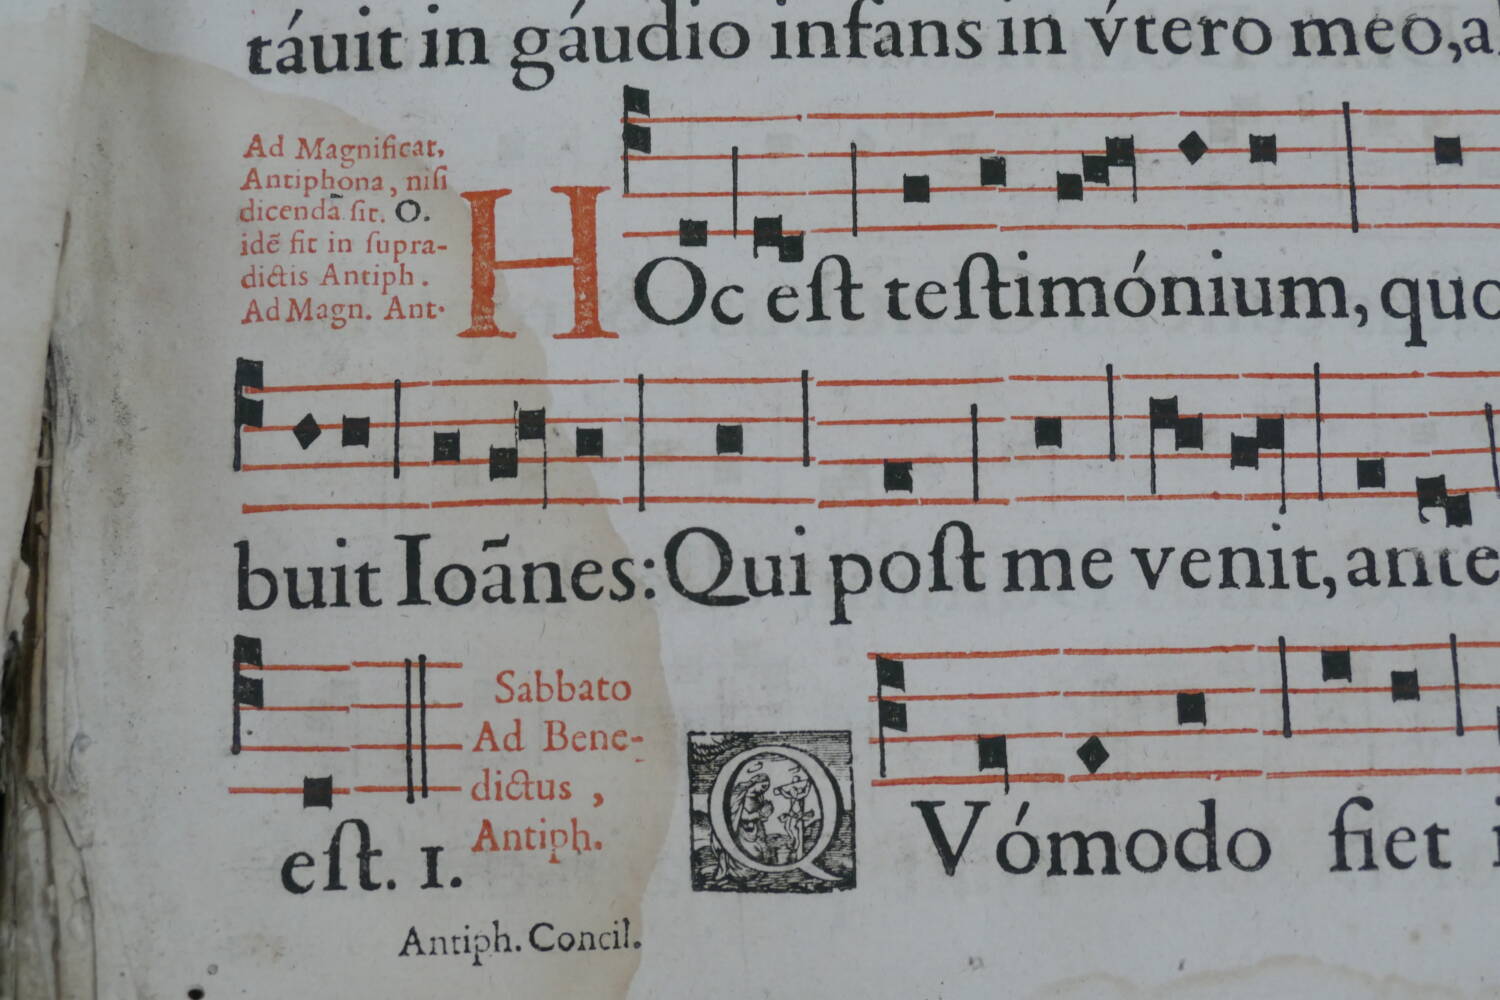 táuit in gáudio infans in vtero meo,a
Ad Magnificat,
Antiphona, niſi
dicendã ſit. O.
idẽ fit in ſupra-
dictis Antiph.
Ad Magn. Ant.
HOc eſt teſtimónium, quo
buit Ioãnes: Qui poſt me venit, ante
eſt. 1.
Sabbato
Ad Bene-
dictus,
Antiph.
QVómodo fiet i
Antiph. Concil.